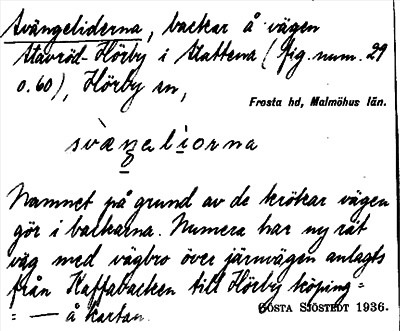 Svängeliderna, backar å vägen
Stavröd-Hörby i Slättena (fig. num. 29
o. 60), Hörby sn,
Frosta hd, Malmöhus län.
svæŋeliorna
Namnet på grund av de krökar vägen
gör i backarna. Numera har ny rät
väg med vägbro över järnvägen anlagts
från Kaffabacken till Hörby köping =
= — å kartan.
GÖSTA SJÖSTEDT 1936.